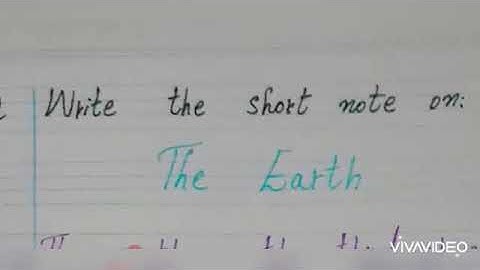 Write the short note on:
The Earth
VIVAVIDEO